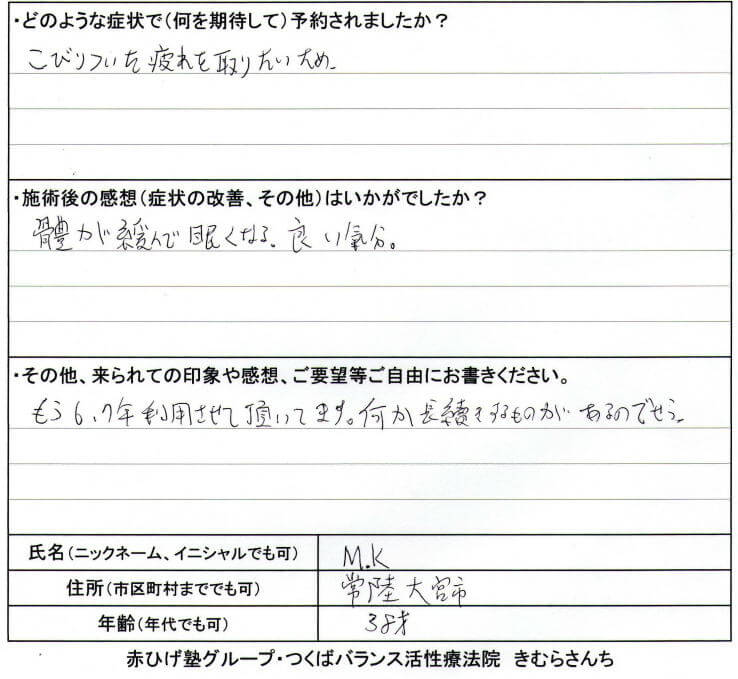 ・どのような症状で(何を期待して)予約されましたか?
こびりついた疲れを取りたいため。
・施術後の感想(症状の改善、その他)はいかがでしたか?
體が緩んで眠くなる。良い氣分。
・その他、来られての印象や感想、ご要望等ご自由にお書きください。
もう6、7年利用させて頂いてます。何か長續きするものがあるのでせう。
氏名(ニックネーム、イニシャルでも可) M.K
住所(市区町村まででも可) 常陸大宮市
年齢(年代でも可) 38才
赤ひげ塾グループ・つくばバランス活性療法院 きむらさんち